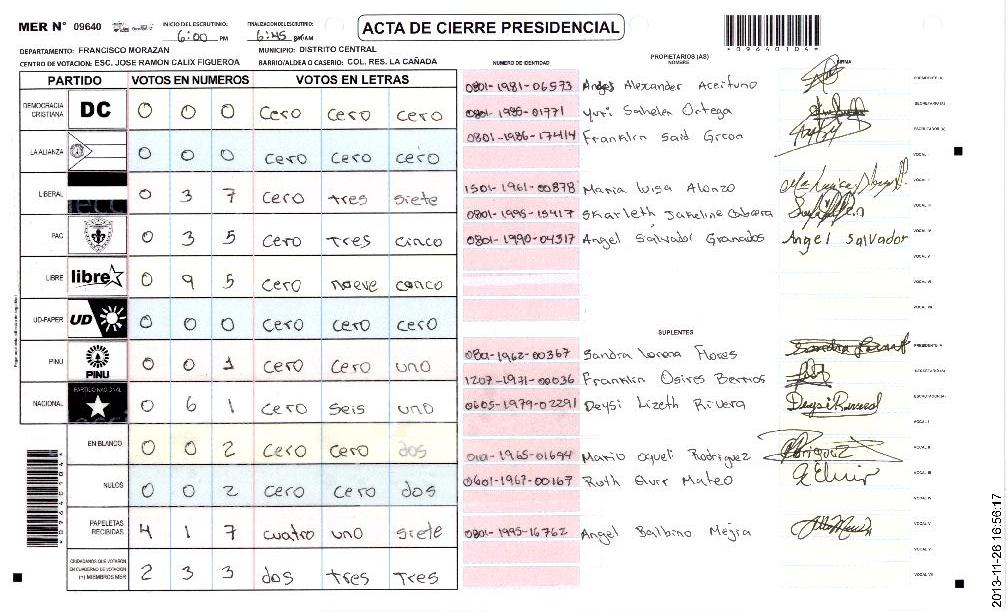 MER N° 09640
INICIO DEL ESCRUTINIO: 6:00 PM
FINALIZACION DEL ESCRUTINIO: 6:45
ACTA DE CIERRE PRESIDENCIAL
09640104
DEPARTAMENTO: FRANCISCO MORAZAN
MUNICIPIO: DISTRITO CENTRAL
CENTRO DE VOTACION: ESC. JOSE RAMON CALIX FIGUEROA
BARRIO/ALDEA O CASERIO: COL. RES. LA CAÑADA
PARTIDO VOTOS EN NUMEROS VOTOS EN LETRAS
DEMOCRACIA CRISTIANA DC 0 0 0 cero cero cero
LA ALIANZA 0 0 0 cero cero cero
LIBERAL 0 3 7 cero tres siete
PAC 0 3 5 cero Tres cinco
LIBRE libre 0 9 5 cero nueve cinco
UD-FAPER UD 0 0 0 cero cero cero
PINU PINU 0 0 1 cero cero uno
NACIONAL PARTIDO NACIONAL 0 6 1 cero seis uno
EN BLANCO 0 0 2 cero cero dos
NULOS 0 0 2 cero cero dos
PAPELETAS RECIBIDAS 4 1 7 cuatro uno siete
CIUDADANOS QUE VOTARON EN CUADERNO DE VOTACION (+) MIEMBROS MER 2 3 3 dos tres Tres
NUMERO DE IDENTIDAD
PROPIETARIOS (AS)
NOMBRE
FIRMA
0801-1981-06573 Angel Alexander Aceituno
0801-1985-01771 Yuri Ortega
0801-1986-17414 Franklin Said
1501-1961-00878 Maria Luisa Alonzo
0801-1995-15417 Skarleth Jakeline Cabrera
0801-1990-04317 Angel Salvador Granados Angel Salvador
SUPLENTES
0801-1962-00367 Sandra Lorena Flores
1207-1971-00036 Franklin Osires Berrios
0605-1979-02291 Deysi Lizeth Rivera
0101-1965-01694 Mario Oqueli Rodriguez
0601-1967-00167 Ruth Mateo
0801-1995-16762 Angel Balbino Mejia
2013-11-26 16:56:17